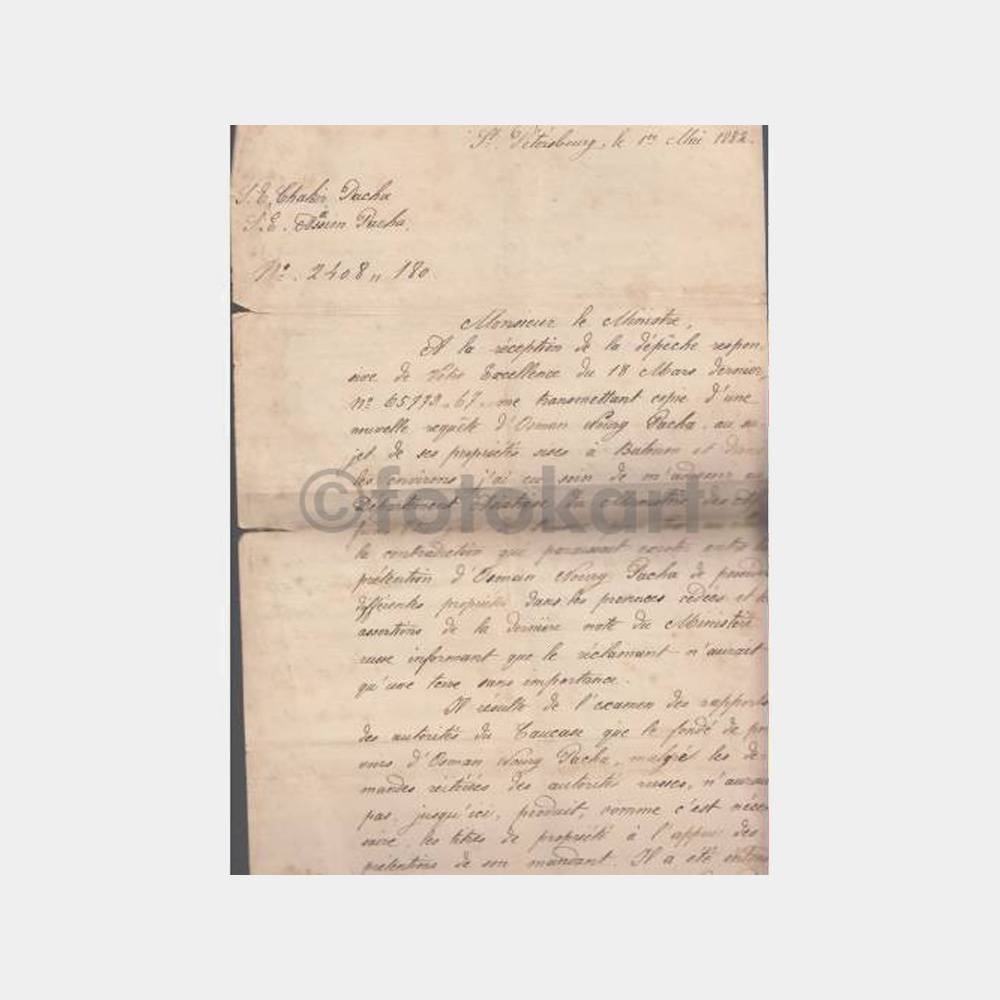 St. Pétersbourg, le 1er Mai 1882.
S. E. Chakir Pacha
S. E. Assim Pacha.
No. 2408 „ 180
Monsieur le Ministre,
A la réception de la dépêche respon-
sive de Votre Excellence du 18 Mars dernier,
No 65772 „ 67 „ me transmettant copie d'une
nouvelle requête d'Osman Noury Pacha au su-
jet de ses propriétés sises à Batoum et dans
les environs j'ai eu soin de m'adresser au
Département Asiatique
©fotokart
la contradiction qui paraissait exister entre la
prétention d'Osman Noury Pacha de posséder
différentes propriétés dans les provinces cédées et les
assertions de la dernière note du Ministère
russe informant que le réclamant n'aurait
qu'une terre sans importance.
Il résulte de l'examen des rapports
des autorités du Caucase que le fondé de pou
voirs d'Osman Noury Pacha, malgré les de-
mandes réitérées des autorités russes, n'aurait
pas, jusqu'ici, produit, comme c'est néces
saire, les titres de propriété à l'appui des
prétentions de son mandant. Il a été